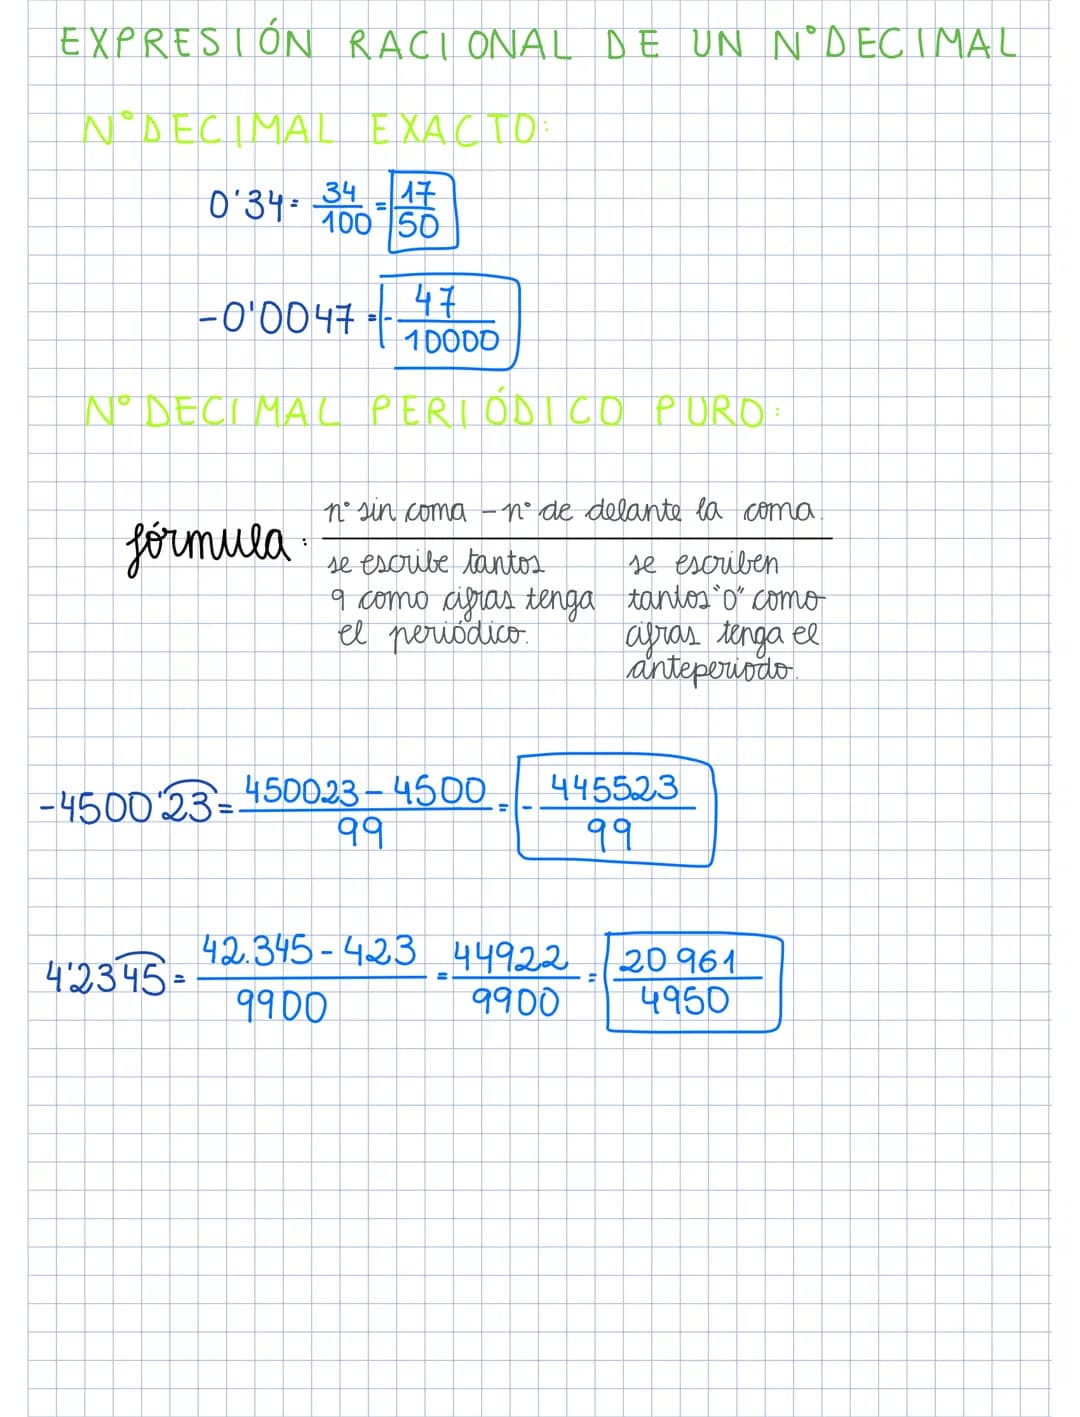 EXPRESIÓN RACIONAL DE UN N°DECIMAL
N°DECIMAL EXACTO:
0'34 = 34/100 = 17/50
-0'0047 = - 47/10000
N° DECIMAL PERIÓDICO PURO:
fórmula:
n° sin coma - n° de delante la coma.
se escribe tantos
9 como cifras tenga
el periódico.
se escriben
tantos "0" como
cifras tenga el
anteperiodo.
-4500'23 = 450023 - 4500 / 99 = - 445523 / 99
4'2345 = 42.345 - 423 / 9900 = 44922 / 9900 = 20961 / 4950